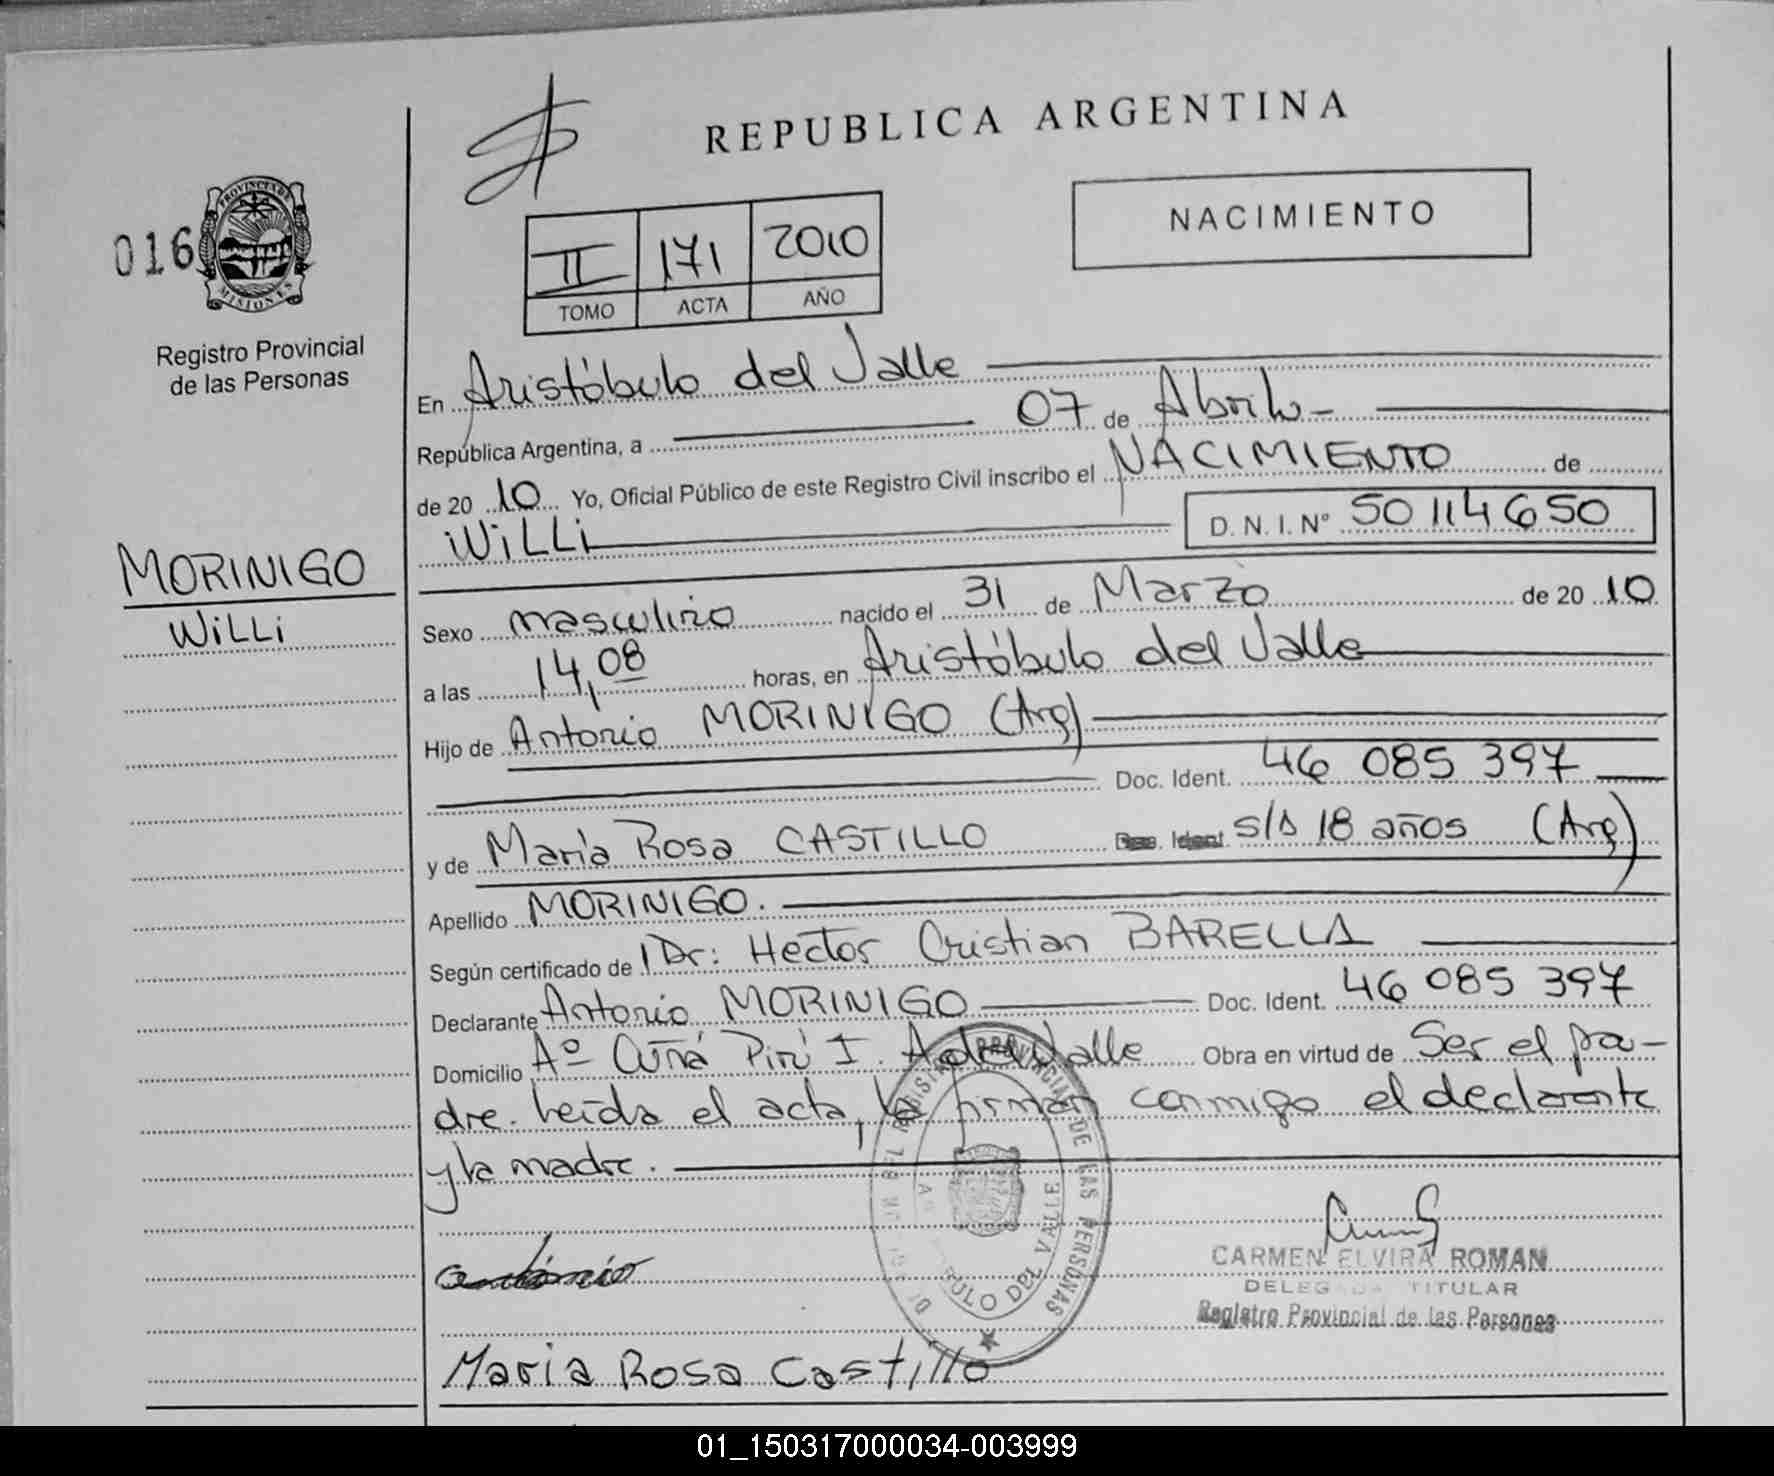 REPUBLICA ARGENTINA
NACIMIENTO
016
PROVINCIA DE
MISIONES
Registro Provincial
de las Personas
II 171 2010
TOMO ACTA AÑO
En Aristóbulo del Valle
República Argentina, a 07 de Abril.-
de 20 10 Yo, Oficial Público de este Registro Civil inscribo el NACIMIENTO de
WiLLi D. N. I. N° 50 114 650
MORINIGO
WiLLi
Sexo masculino nacido el 31 de Marzo de 20 10
a las 14,08 horas, en Aristóbulo del Valle
Hijo de Antonio MORINIGO (Arg)
Doc. Ident. 46 085 397
y de María Rosa CASTILLO Doc. Ident s/d 18 años (Arg)
Apellido MORINIGO.
Según certificado de Dr: Hector Cristian BARELLA
Declarante Antonio MORINIGO Doc. Ident. 46 085 397
Domicilio Aº Cuñá Pirú I. A del Valle Obra en virtud de Ser el pa-
dre. Leída el acta, la firman conmigo el declarante
y la madre.
REGISTRO PROVINCIAL DE LAS PERSONAS
DEL VALLE
antonio
CARMEN ELVIRA ROMAN
DELEGADA TITULAR
Registro Provincial de las Personas
Maria Rosa Castillo
01_150317000034-003999